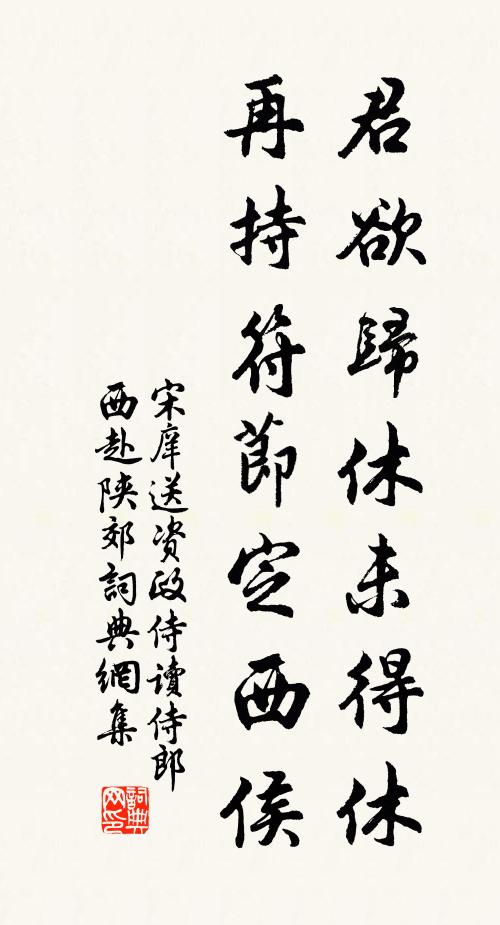 君欲歸休未得休
再持符節定西侯
宋庠送資政侍讀侍郎
西赴陝郊詞典網集
詞典
网印